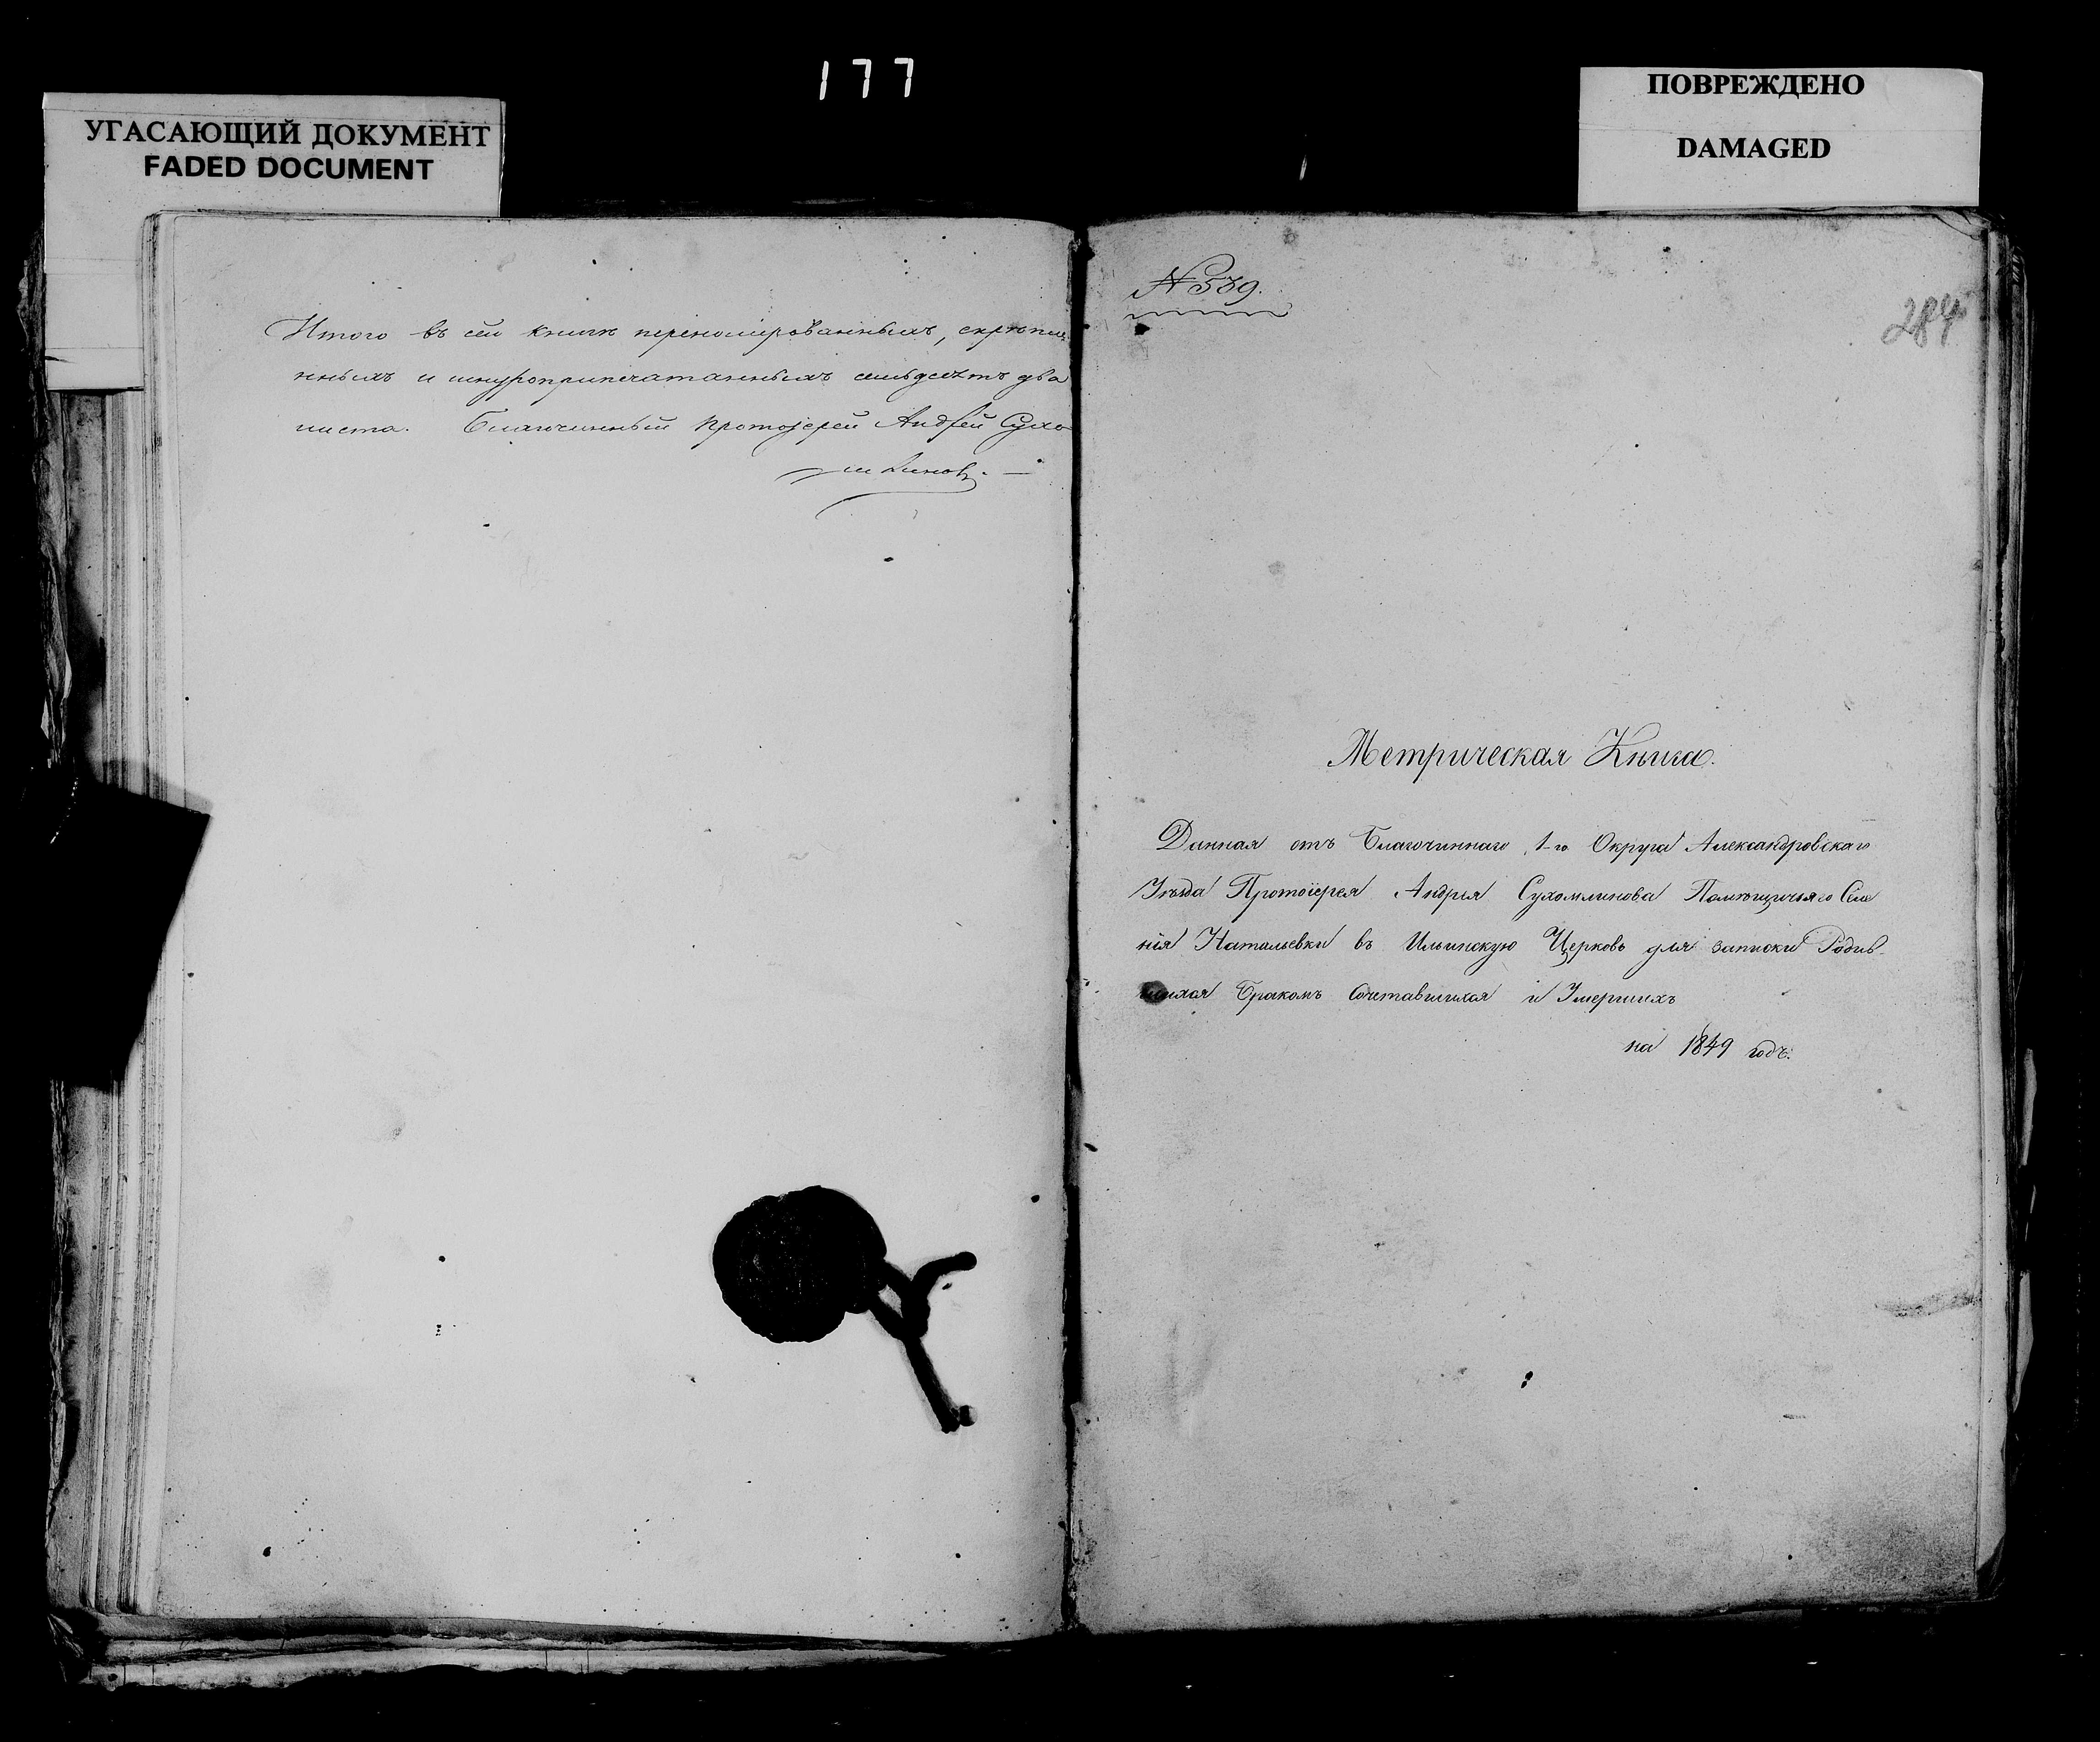 177
УГАСАЮЩИЙ ДОКУМЕНТ
FADED DOCUMENT
ПОВРЕЖДЕНО
DAMAGED
Итого въ сей книгѣ переномерованныхъ, скрѣплен
нныхъ и шнуроприпечатанныхъ семьдесѣтъ два
листа. Благочинный Протоіерей Андрей Сухо
млиновъ. —
№ 539.
284
Метрическая Книга.
Данная отъ Благочиннаго 1-го Округа Александровскаго
Уѣзда Протоіерея Андрея Сухомлинова Помѣщичьяго Селе
нія Натальевки въ Ильинскую Церковь для записки Родив-
шихся Бракомъ Сочетавшихся и Умершихъ
на 1849 годъ.